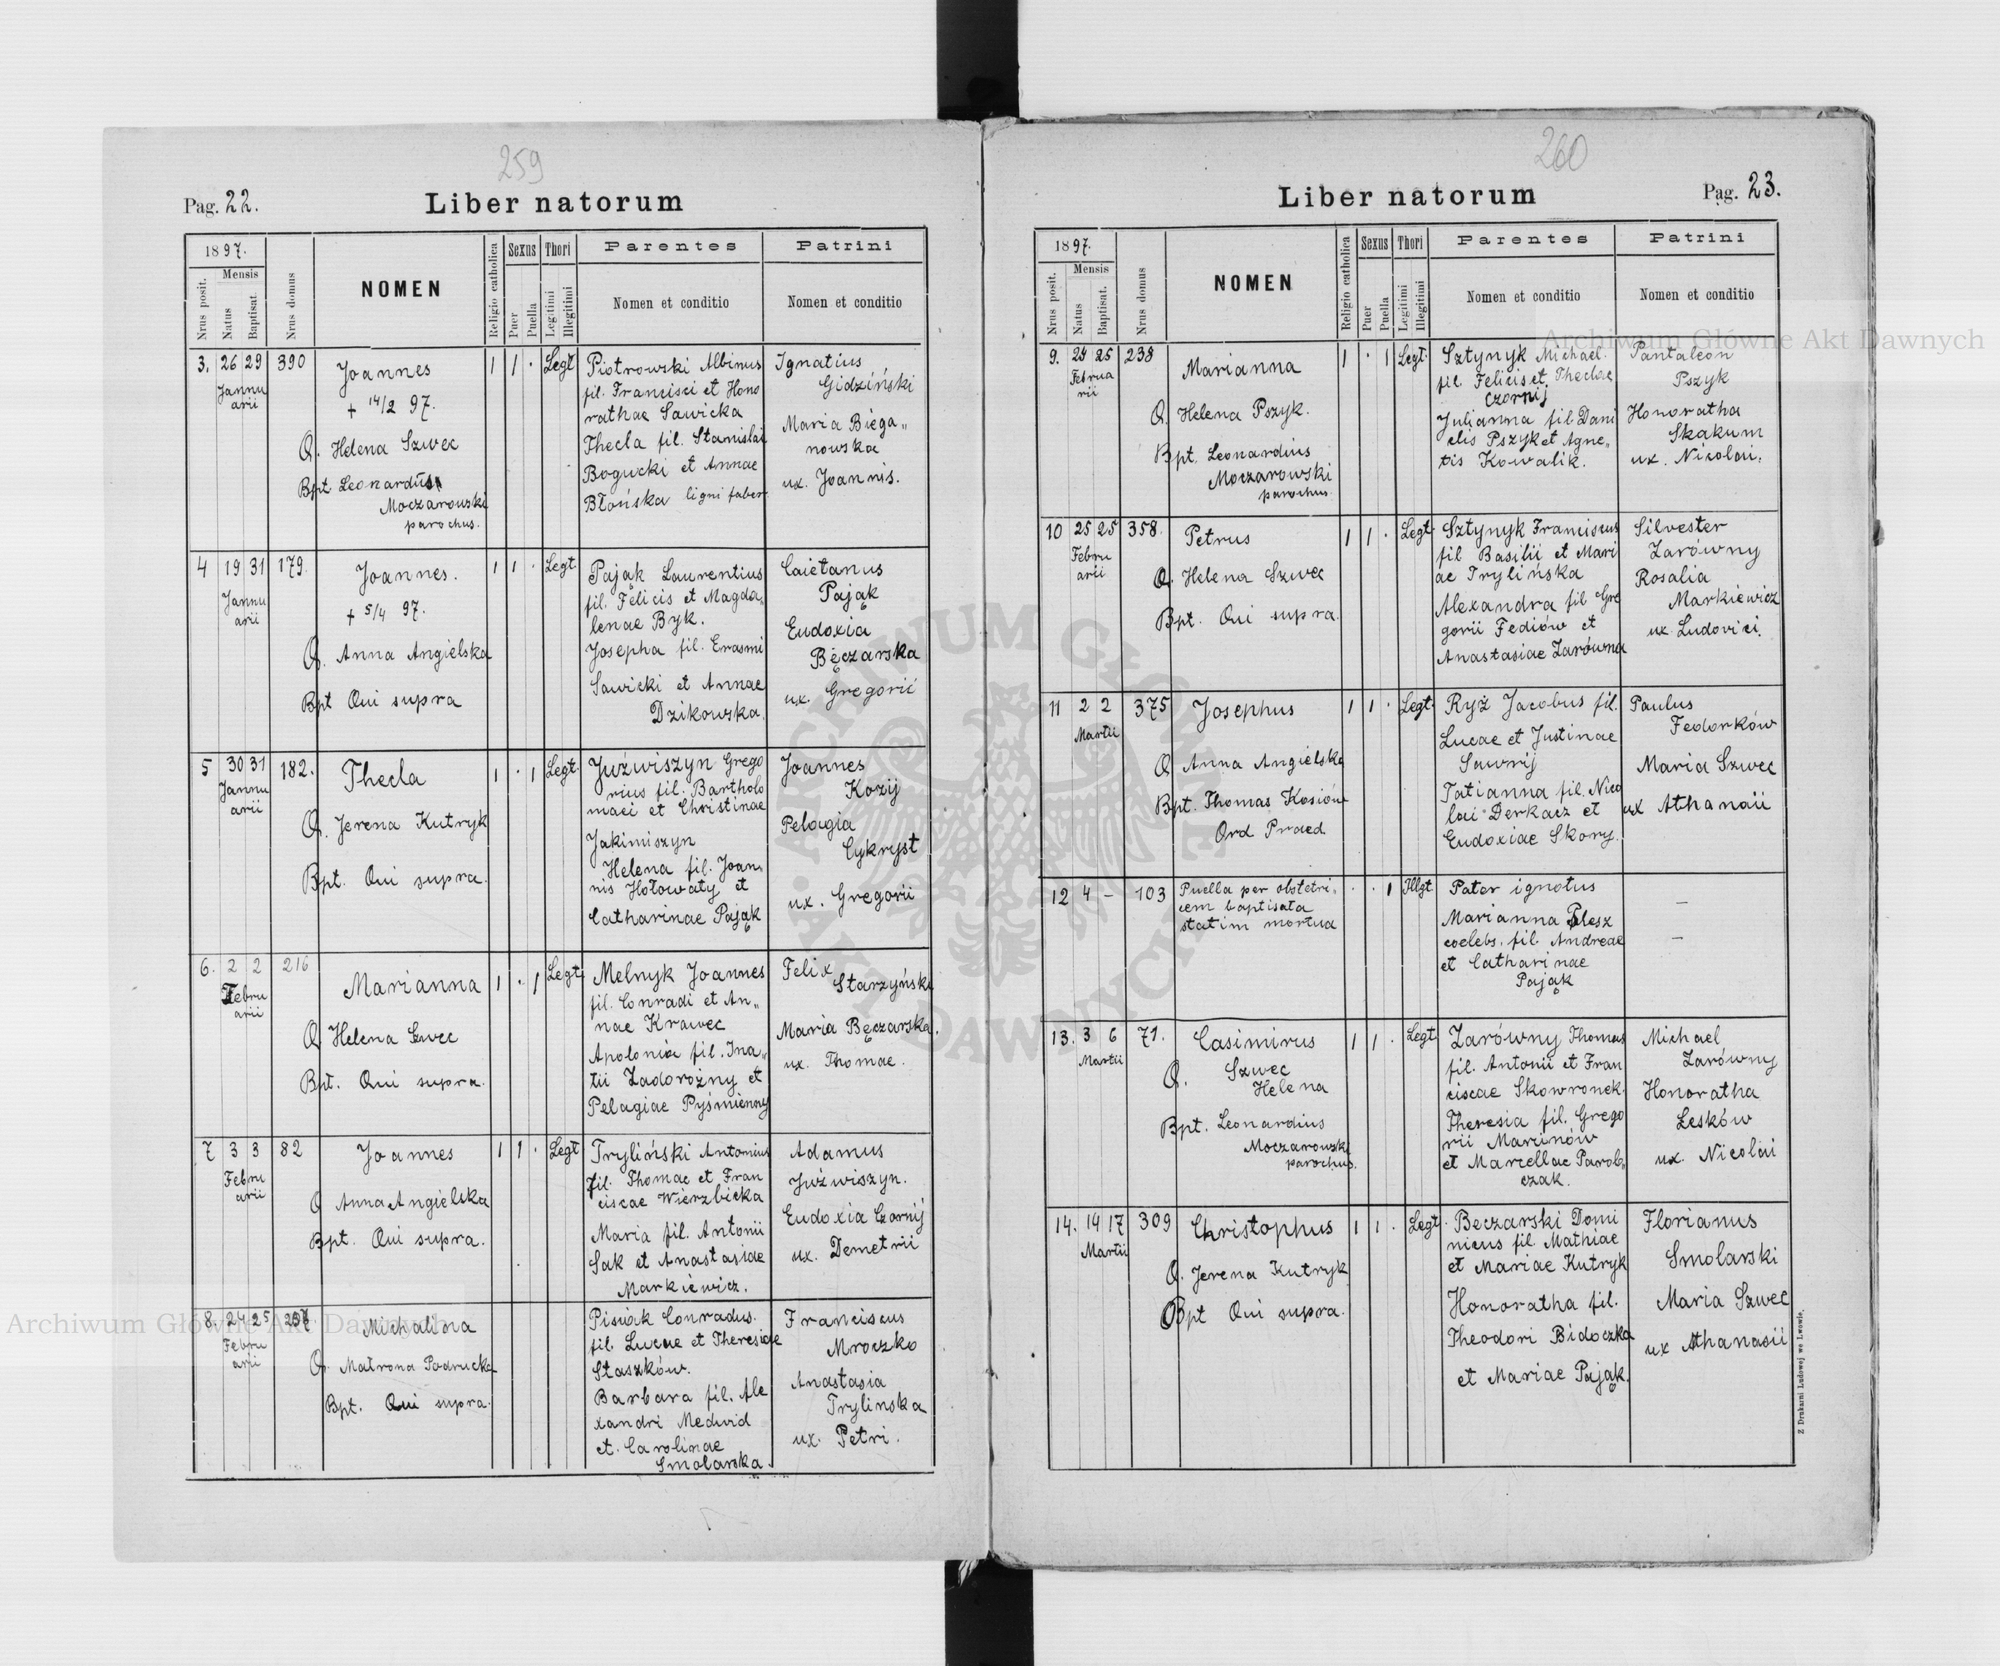 259
Pag. 22.
Liber natorum
1897.
Nrus posit.
Mensis
Natus
Baptisat.
Nrus domus
NOMEN
Religio catholica
Sexus
Puer
Puella
Thori
Legitimi
Illegitimi
Parentes
Nomen et conditio
Patrini
Nomen et conditio
3. 26 29 390
Jannu
arii
Joannes
+ 14/2 97.
O. Helena Szwec
Bpt. Leonardus
Moczarowski
parochus.
1 1 . Legt
Piotrowski Albinus
fil. Francisci et Hono
rathae Sawicka
Thecla fil. Stanislai
Bogucki et Annae
Błońska ligni faber.
Ignatius
Gidziński
Maria Biega„
nowska
ux. Joannis.
4 19 31 179.
Jannu
arii
Joannes.
+ 5/4 97.
O. Anna Angielska
Bpt Qui supra
1 1 . Legt
Pająk Laurentius
fil. Felicis et Magda„
lenae Byk.
Josepha fil. Erasmi
Sawicki et Annae
Dzikowska.
Caietanus
Pająk
Eudoxia
Bęczarska
ux. Gregorii
5 30 31 182.
Jannu
arii
Thecla
O. Jerena Kutryk
Bpt. Qui supra.
1 . 1 Legt
Juźwiszyn Grego
rius fil. Bartholo
maei et Christinae
Jakimiszyn
Helena fil. Joan„
nis Hołowaty et
Catharinae Pająk
Joannes
Kozij
Pelagia
Cykryst
ux. Gregorii
6. 2 2 216
Febru
arii
Marianna
O Helena Szwec
Bpt. Qui supra.
1 . 1 Legt
Melnyk Joannes
fil. Conradi et An„
nae Krawec
Apolonia fil. Ina„
tii Zadorożny et
Pelagiae Pyśmienny
Felix
Starzyński
Maria Bęczarska.
ux. Thomae.
7 3 3 82
Febru
arii
Joannes
O Anna Angielska
Bpt. Qui supra.
1 1 . Legt
Tryliński Antonius
fil. Thomae et Fran
ciscae Wierzbicka
Maria fil. Antonii
Sak et Anastasiae
Markiewicz.
Adamus
Juźwiszyn.
Eudoxia Czornij
ux. Demetrii
8. 24 25
Febru
arii
Michalina
O. Matrona Podrucka
Bpt. Qui supra.
Pisiak Conradus.
fil. Lucae et Theresiae
Staszków.
Barbara fil. Ale
xandri Medwid
et. Carolinae
Smolarska.
Franciscus
Mroczko
Anastasia
Trylinska
ux. Petri.
260
Liber natorum
Pag. 23.
1897.
Nrus posit.
Mensis
Natus
Baptisat.
Nrus domus
NOMEN
Religio catholica
Sexus
Puer
Puella
Thori
Legitimi
Illegitimi
Parentes
Nomen et conditio
Patrini
Nomen et conditio
9. 25 238
Februa
rii
Marianna
O. Helena Pszyk.
Bpt. Leonardius
Moczarowski
parochus.
1 . 1 Legt.
Sztynyk Michael.
fil. Felicis et Theclae
Czornij
Julianna fil Dani
elis Pszyk et Agne„
tis Kowalik.
Pantaleon
Pszyk
Honoratha
Skakum
ux. Nicolai.
10 25 25 358.
Febru
arii
Petrus
O. Helena Szwec
Bpt. Qui supra.
1 1 . Legt.
Sztynyk Franciscus
fil Basilii et Mari
ae Trylińska
Alexandra fil Gre
gorii Fediów et
Anastasiae Zarówna
Silvester
Zarówny
Rosalia
Markiewicz
ux. Ludovici.
11 2 2 375
Martii
Josephus
O Anna Angielska
Bpt. Thomas Kosiów
Ord Praed
1 1 . Legt.
Ryż Jacobus fil.
Lucae et Justinae
Sawrij
Tatianna fil. Nico
lai Derkacz et
Eudoxiae Skory.
Paulus
Fedorków
Maria Szwec
ux Athanaii
12 4 – 103
Puella per obstetri„
cem baptisata
statim mortua
. . 1 Illgt
Pater ignotus
Marianna Plesz
coelebs. fil. Andreae
et Catharinae
Pająk
–
–
13. 3 6 71.
Martii
Casimirus
O. Szwec
Helena
Bpt. Leonardius
Moczarowski
parochus.
1 1 . Legt
Zarówny Thomas
fil. Antonii et Fran
ciscae Skowronek.
Theresia fil. Grego
rii Marcinów
et Marcellae Parob„
czak.
Michael
Zarówny
Honoratha
Lesków
ux. Nicolai
14. 14 17 309
Martii
Christophus
O. Jerena Kutryk
Bpt Qui supra.
1 1 . Legt.
Beczarski Domi
nicus fil. Mathiae
et Mariae Kutryk
Honoratha fil.
Theodori Bidoczka
et Mariae Pająk.
Florianus
Smolarski
Maria Szwec
ux Athanasii
Z Drukarni Ludowej we Lwowie.
Archiwum Główne Akt Dawnych
Archiwum Główne Akt Dawnych
ARCHIWUM GŁÓWNE AKT DAWNYCH